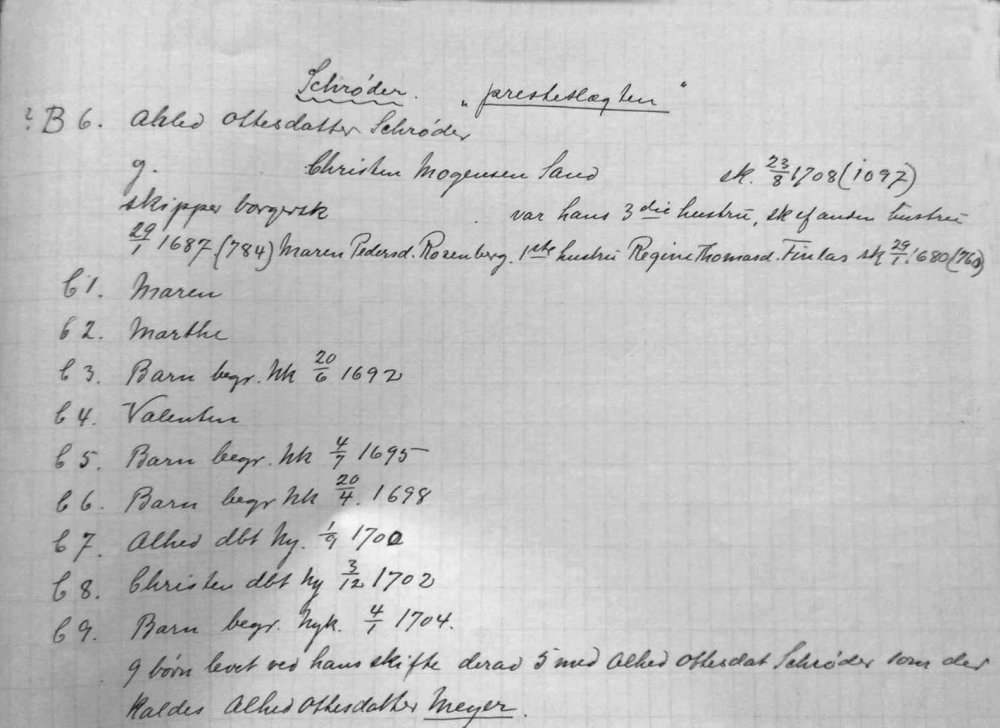 Schrøder. "presteslægten"
? B 6. Alhed Ottesdatter Schrøder
g. Christen Mogensen Sand sk. 23/8 1708 (1097)
skipper borgersk var hans 3die hustru, sk ef anden hustru
29/1 1687 (784) Maren Pedersd. Rosenberg. 1ste hustru Regine Thomasd. Finlas sk 29/1 1680 (760)
C 1. Maren
C 2. Marthe
C 3. Barn begr. Nk 20/6 1692
C 4. Valentin
C 5. Barn begr. Nk 4/7 1695
C 6. Barn begr Nk 20/4. 1698
C 7. Alhed dbt Ny. 1/9 1700
C 8. Christen dbt Ny 3/12 1702
C 9. Barn begr. Nyk. 4/1 1704.
9 børn levet ved hans skifte derav 5 med Alhed Ottesdat Schrøder som der
kaldes Alhed Ottesdatter Meyer.